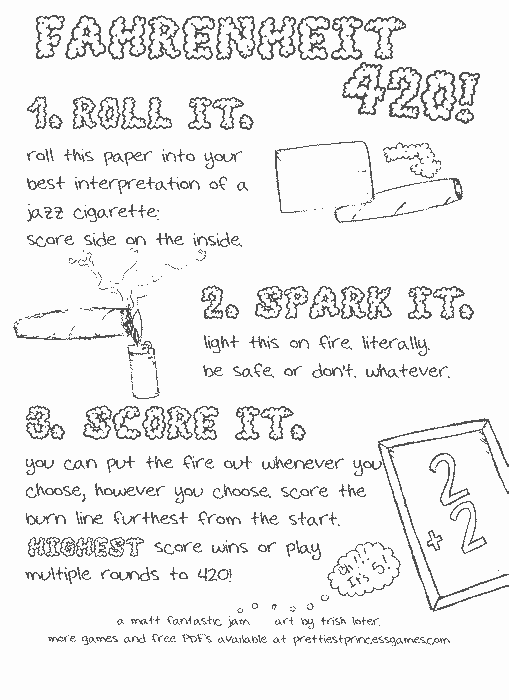 FAHRENHEIT
420!
1. ROLL IT.
roll this paper into your
best interpretation of a
jazz cigarette;
score side on the inside.
2. SPARK IT.
light this on fire. literally.
be safe. or don't. whatever.
3. SCORE IT.
you can put the fire out whenever you
choose, however you choose. score the
burn line furthest from the start.
HIGHEST score wins or play
multiple rounds to 420!
2
+2
It's 5!
a matt fantastic jam art by trish loter.
more games and free PDF's available at prettiestprincessgames.com